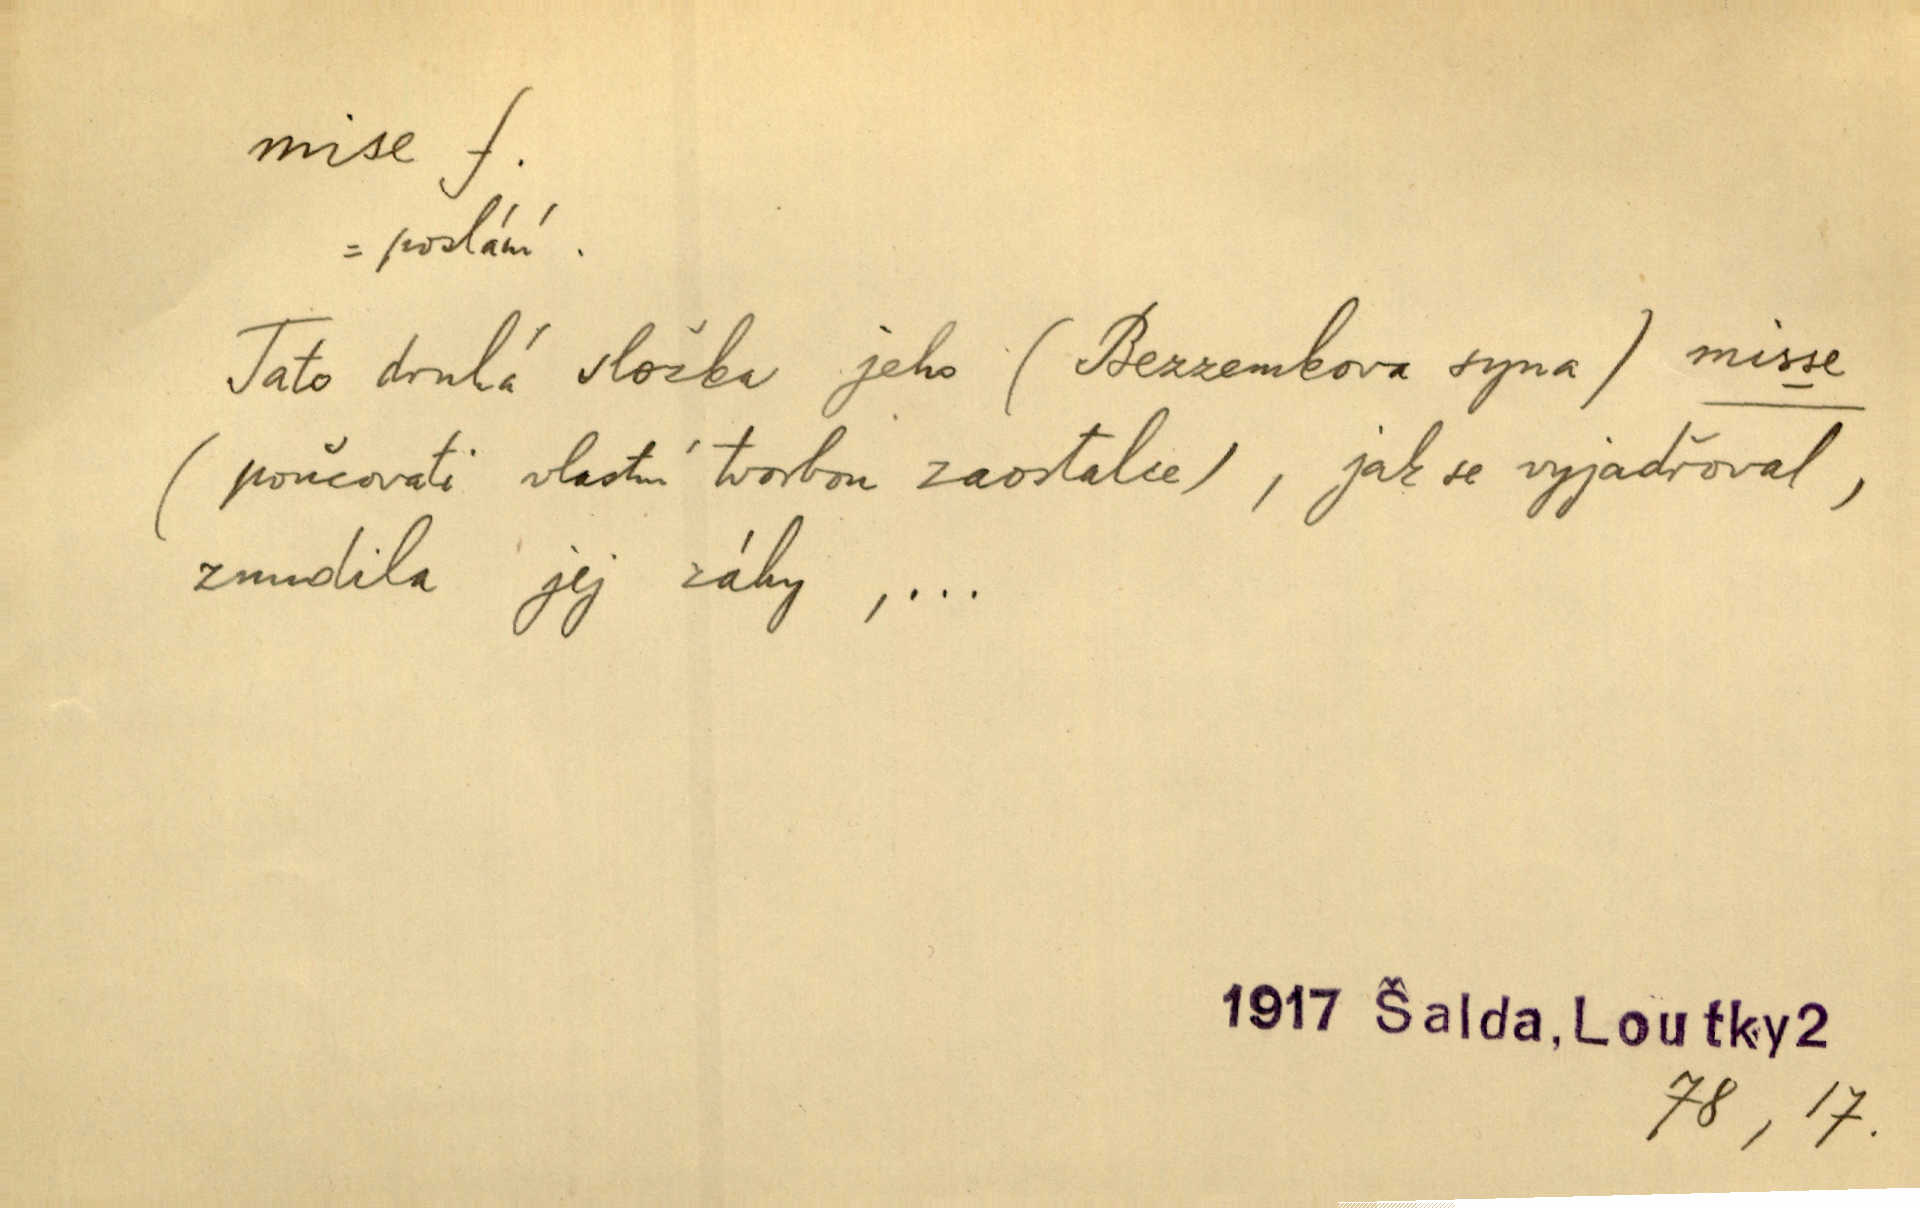 mise f.
= poslání.
Tato druhá složka jeho (Bezzemkova syna) misse
(poučovati vlastní tvorbou zaostalce), jak se vyjadřoval,
znudila jej záhy,...
1917 Šalda, Loutky2
78, 17.